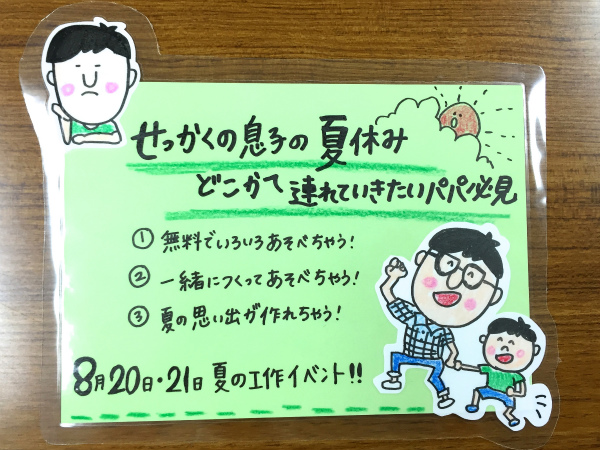 せっかくの息子の夏休み
どこかて連れていきたいパパ必見
① 無料でいろいろあそべちゃう!
② 一緒につくってあそべちゃう!
③ 夏の思い出が作れちゃう!
8月20日・21日 夏の工作イベント!!